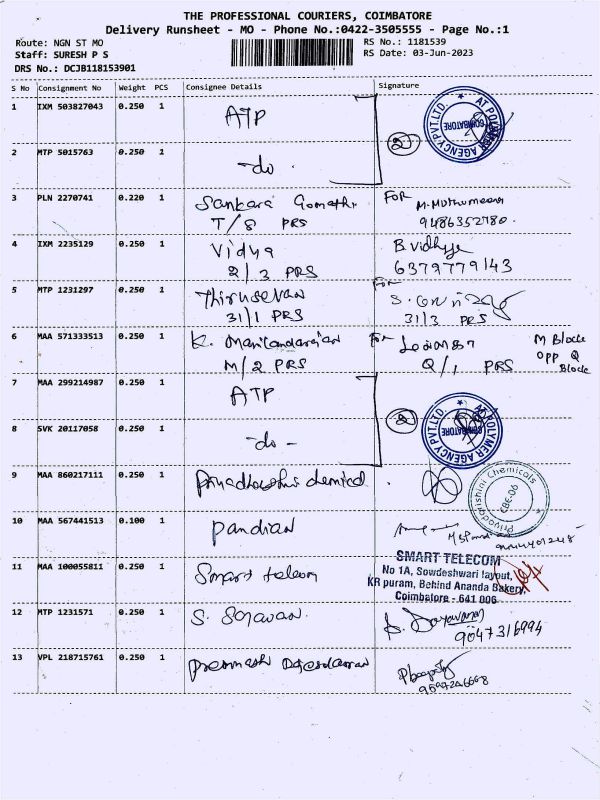 THE PROFESSIONAL COURIERS, COIMBATORE
Delivery Runsheet - MO - Phone No.:0422-3505555 - Page No.:1
Route: NGN ST MO
RS No.: 1181539
Staff: SURESH P S
RS Date: 03-Jun-2023
DRS No.: DCJB118153901
S No Consignment No Weight PCS Consignee Details Signature
1 IXM 503827043 0.250 1 ATP
AT POLYMER AGENCY PVT.LTD. COIMBATORE
2
2 MTP 5015763 0.250 1 -do-
3 PLN 2270741 0.220 1 Sankara Gomathi FOR M. Muthumeena
T/8 PRS 9486352780.
4 IXM 2235129 0.250 1 Vidya B. Vidhya
2/3 PRS 6379779143
5 MTP 1231297 0.250 1 For
31/1 PRS 31/3 PRS
6 MAA 571333513 0.250 1 K. For M Block
M/2 PRS Q/1 PRS opp Q
Block
7 MAA 299214987 0.250 1 ATP
AT POLYMER AGENCY PVT.LTD. COIMBATORE
2
8 SVK 20117058 0.250 1 -do-
9 MAA 860217111 0.250 1 chemical
Priyadarishini Chemicals CBE-06
10 MAA 567441513 0.100 1 pandian
11 MAA 100055811 0.250 1 Smart telecom
SMART TELECOM
No 1A, Sowdeshwari layout,
KR puram, Behind Ananda Bakery,
Coimbatore - 641 006
12 MTP 1231571 0.250 1 S. Saravan
9047316994
13 VPL 218715761 0.250 1